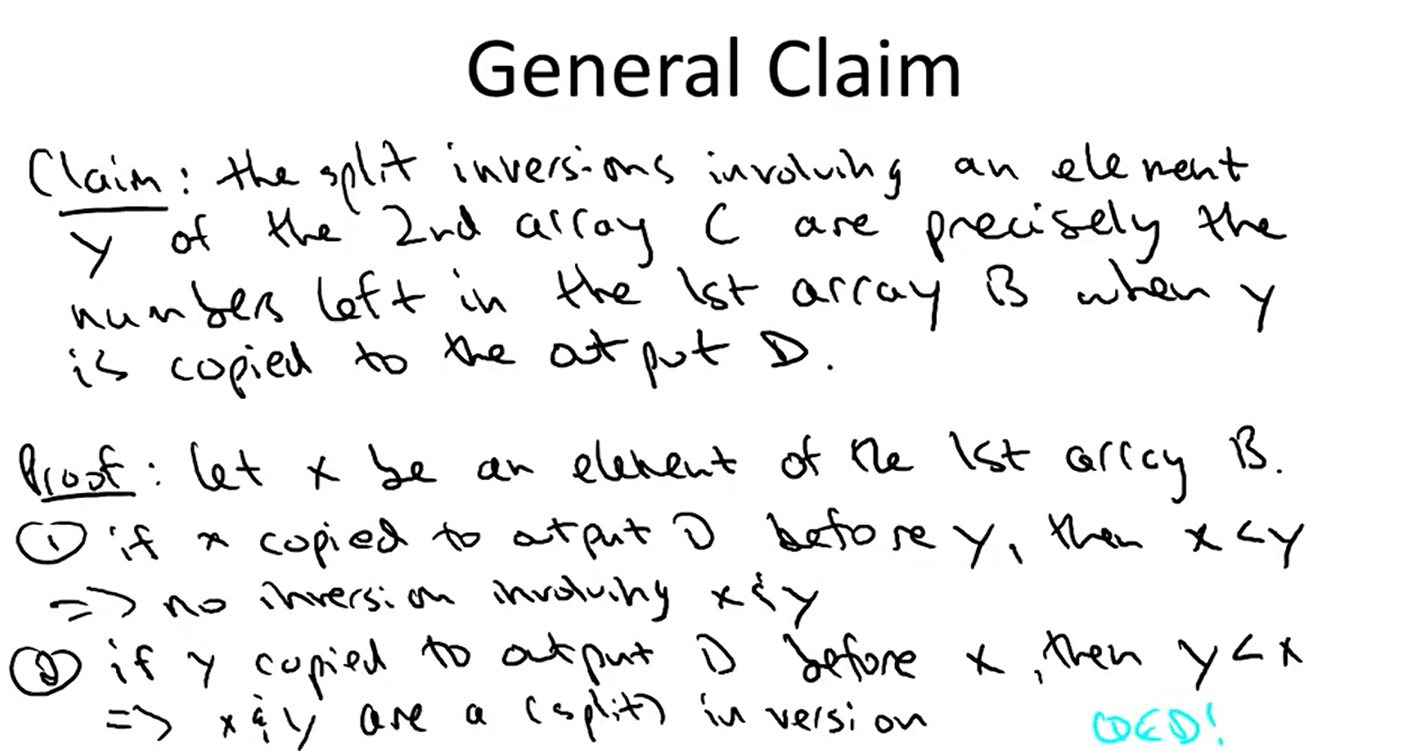 General Claim
Claim: the split inversions involving an element
y of the 2nd array C are precisely the
numbers left in the 1st array B when y
is copied to the output D.
Proof: let x be an element of the 1st array B.
① if x copied to output D before y, then x < y
=> no inversion involving x & y
② if y copied to output D before x, then y < x
=> x & y are a (split) inversion QED!